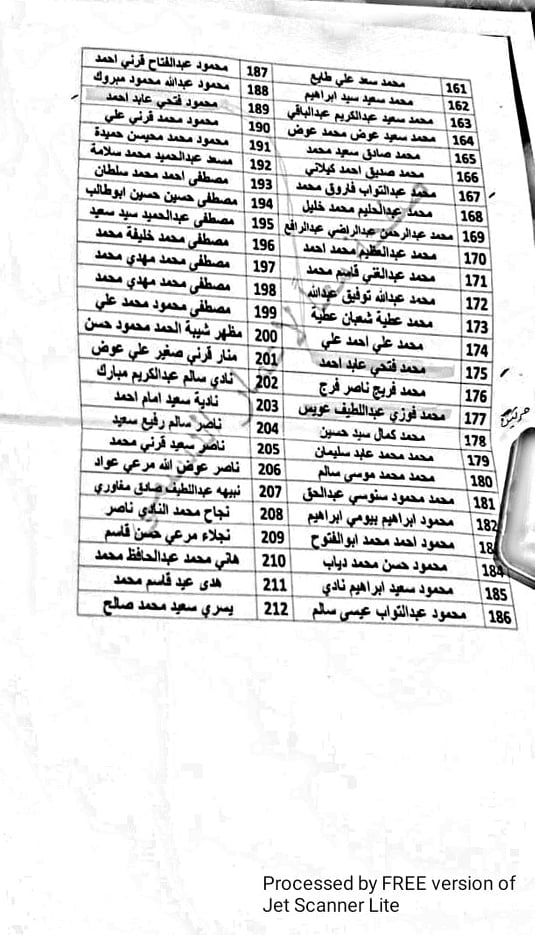 161 محمد سعد علي طايع
162 محمد سعيد سيد ابراهيم
163 محمد سعيد عبدالكريم عبدالباقي
164 محمد سعيد عوض محمد عوض
165 محمد صادق سعيد محمد
166 محمد صديق احمد كيلاني
167 محمد عبدالتواب فاروق محمد
168 محمد عبدالحليم محمد خليل
169 محمد عبدالرحمن عبدالراضي عبدالرافع
170 محمد عبدالعظيم محمد احمد
171 محمد عبدالغني قاسم محمد
172 محمد عبدالله توفيق عبدالله
173 محمد عطية شعبان عطية
174 محمد علي احمد علي
175 محمد فتحي عابد احمد
176 محمد فريج ناصر فرج
177 محمد فوزي عبداللطيف عويس
178 محمد كمال سيد حسين
179 محمد محمد عابد سليمان
180 محمد محمد موسى سالم
181 محمد محمود سنوسي عبدالحق
182 محمود ابراهيم بيومي ابراهيم
محمود احمد محمد ابوالفتوح
184 محمود حسن محمد دياب
185 محمود سعيد ابراهيم نادي
186 محمود عبدالتواب عيسى سالم
187 محمود عبدالفتاح قرني احمد
188 محمود عبدالله محمود مبروك
189 محمود فتحي عابد احمد
190 محمود محمد قرني علي
191 محمود محمد محيسن حميدة
192 مسعد عبدالحميد محمد سلامة
193 مصطفى احمد احمد محمد سلطان
194 مصطفى حسين حسين ابوطالب
195 مصطفى عبدالحميد سيد سعيد
196 مصطفى محمد خليفة محمد
197 مصطفى محمد مهدي محمد
198 مصطفى محمد مهدي محمد
199 مصطفى محمود محمد علي
200 مظهر شيبة الحمد محمود حسن
201 منار قرني صغير علي عوض
202 نادي سالم عبدالكريم مبارك
203 نادية سعيد امام احمد
204 ناصر سالم رفيع سعيد
205 ناصر سعيد قرني محمد
206 ناصر عوض الله مرعي عواد
207 نبيهه عبداللطيف صادق مغاوري
208 نجاح محمد النادي ناصر
209 نجلاء مرعي حسن قاسم
210 هاني محمد عبدالحافظ محمد
211 هدى عيد قاسم محمد
212 يسري سعيد محمد صالح
Processed by FREE version of
Jet Scanner Lite